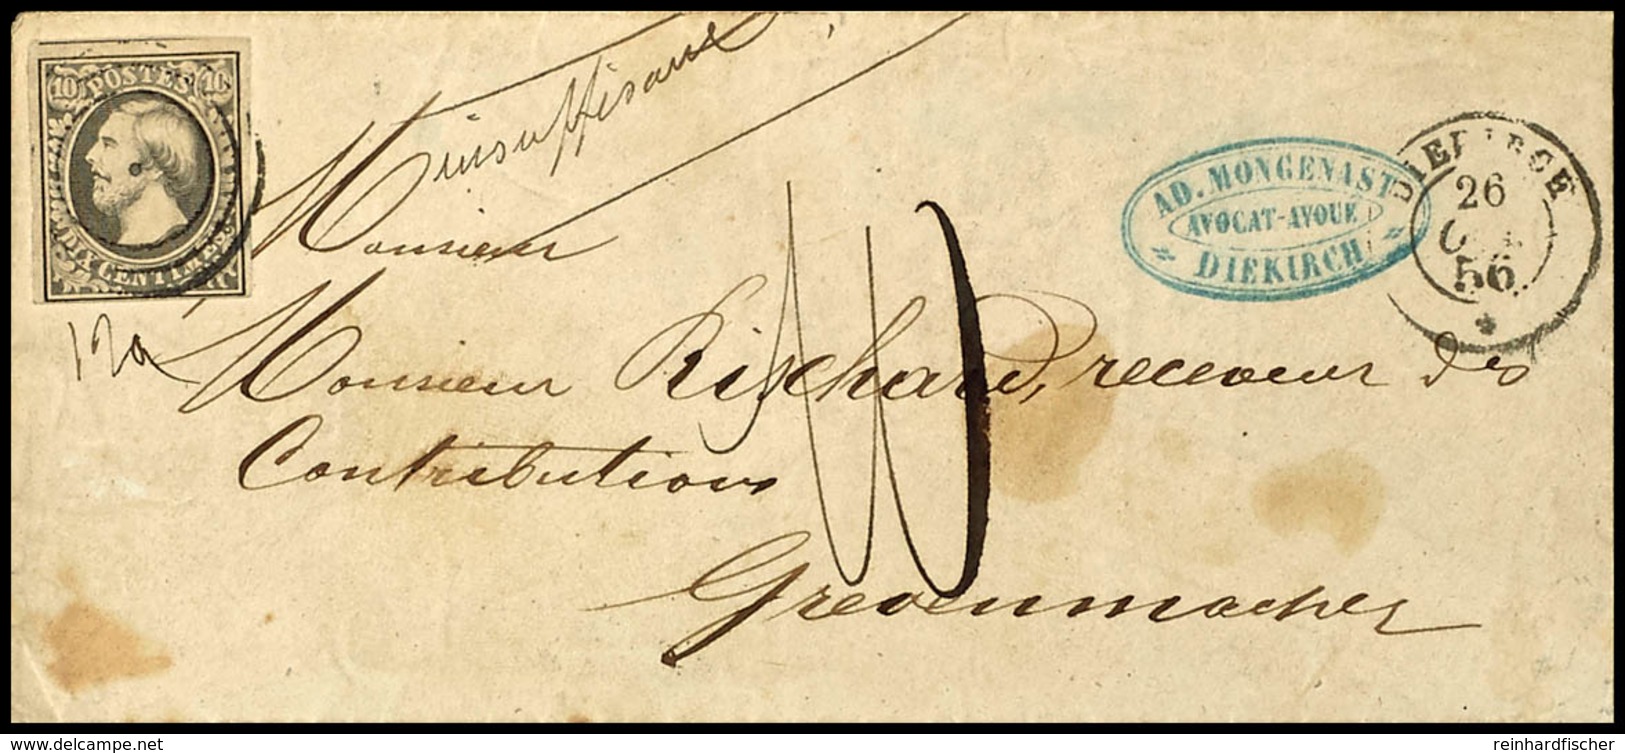 10 POSTES 10
DIX CENTIMES
insuffisant
Monsieur
AD. MONGENAST
AVOCAT-AVOUÉ
DIEKIRCH
DIEKIRCH
26
56
12a
Monsieur Rischard, receveur des
Contributions
10
Grevenmacher
delcampe.net
reinhardfischer